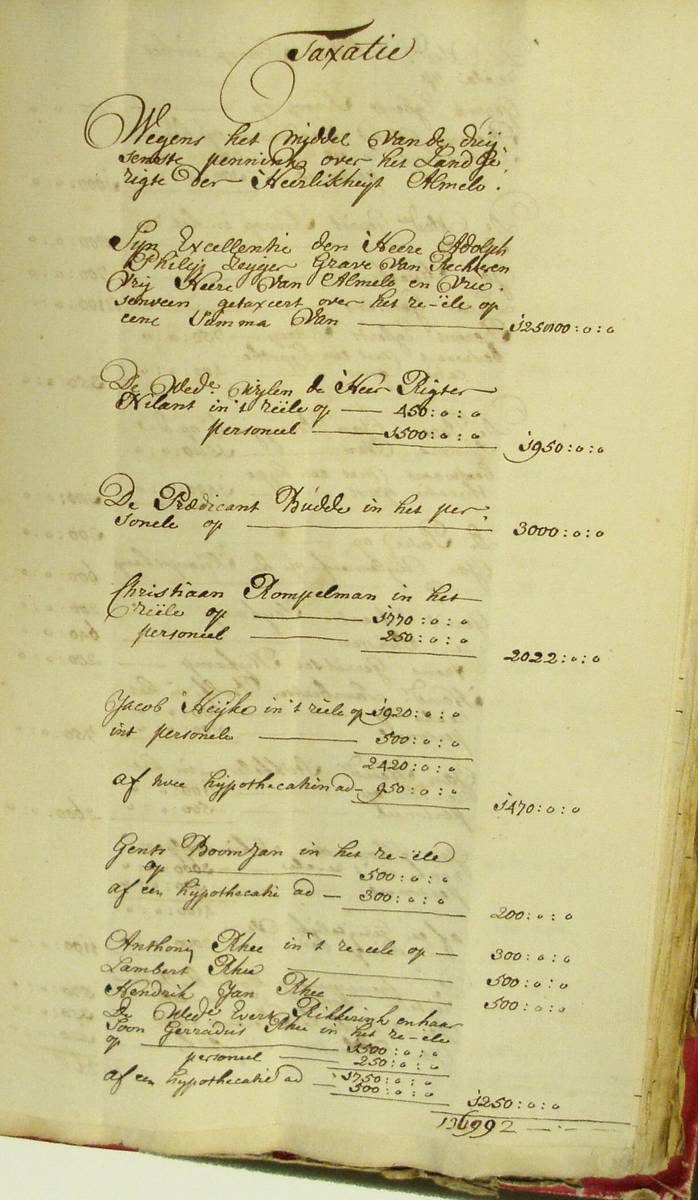 Taxatie
Wegens het middel van de drij
senste penninck over het Land Ge,
rigte der Heerlikheijt Almelo.
Sijn Excellentie den Heere Adolph
Philip Zeijger Grave van Rechteren
Vrij Heere van Almelo en Vrie,
senveen getaxeert over het re-ële op
eene Summa van 125000:0:0
De Wede. wijlen de Heer Rigter
Nilant in't reële op 450:0:0
personeel 1500:0:0 1950:0:0
De Prædicant Budde in het per,
sonele op 3000:0:0
Christiaan Rompelman in het
reële op 1770:0:0
personeel 250:0:0 2022:0:0
Jacob Heijke in't reële op 1920:0:0
int personele 500:0:0
2420:0:0
af twee hypothecatien ad 950:0:0 1470:0:0
Gents BoomJan in het re-ële
op 500:0:0
af een hypothecatie ad 300:0:0 200:0:0
Anthonij Rhee in't re-ele op 300:0:0
Lambert Rhee 500:0:0
Hendrik Jan Rhee 500:0:0
De Wede Evert Rikkerink en haar
Soon Gerradus Rhee in het re-ële
op 1500:0:0
personeel 250:0:0
1750:0:0
af een hypothecatie ad 500:0:0 1250:0:0